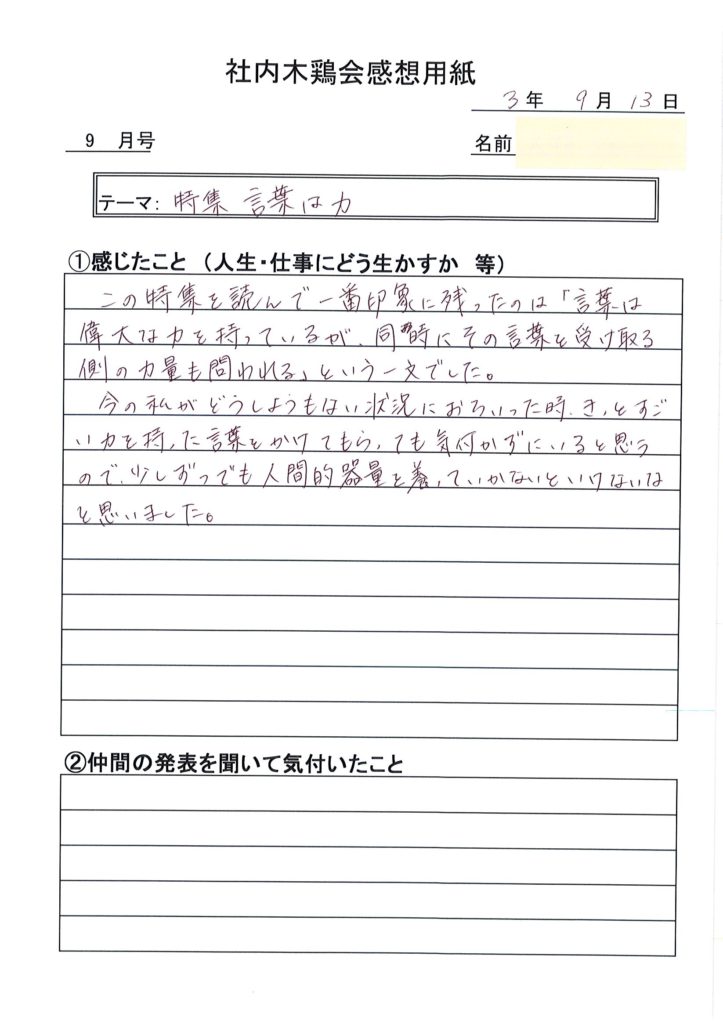 社内木鶏会感想用紙
3年 9月 13日
9 月号
名前
テーマ: 特集 言葉は力
①感じたこと (人生・仕事にどう生かすか 等)
この特集を読んで一番印象に残ったのは「言葉は
偉大な力を持っているが、同時にその言葉を受け取る
側の力量も問われる」という一文でした。
今の私がどうしようもない状況におちいった時、きっとすご
い力を持った言葉をかけてもらっても気付かずにいると思う
ので、少しずつでも人間的器量を養っていかないといけないな
と思いました。
②仲間の発表を聞いて気付いたこと